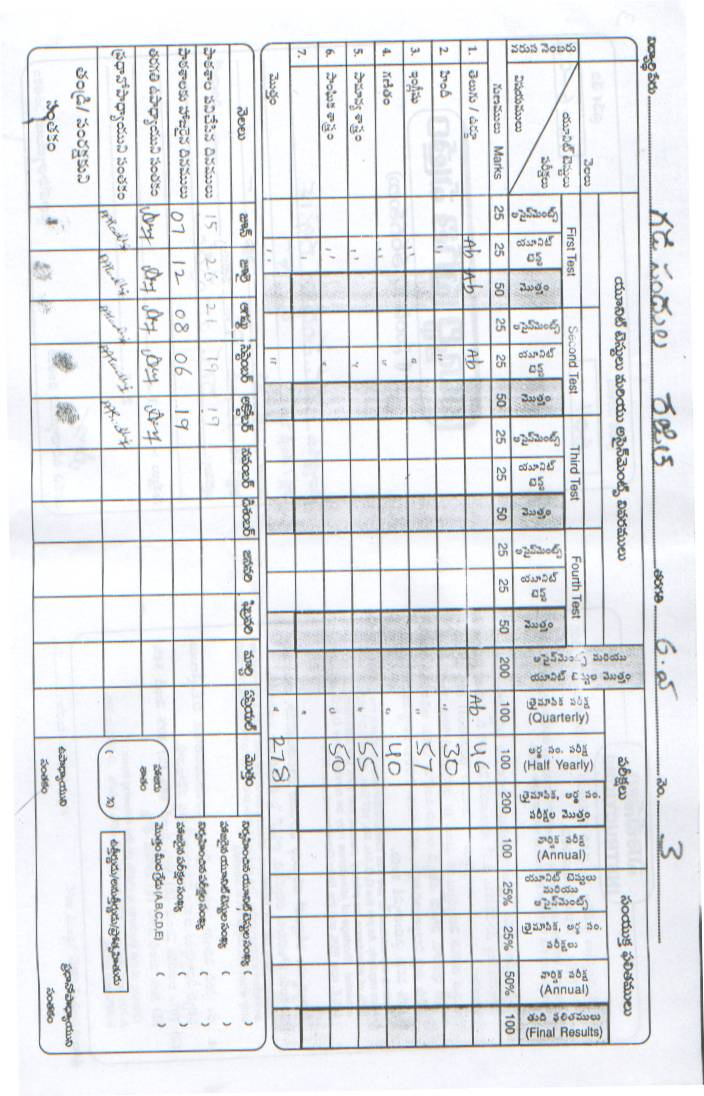 విద్యార్థి పేరు తరగతి 6 నెం. 3
వరుస నెంబరు
విషయములు
యూనిట్ టెస్టులు పరీక్షలు
నెలలు
గుణములు Marks
యూనిట్ టెస్టులు మరియు అసైన్‌మెంట్స్ వివరములు
పరీక్షలు
సంయుక్త ఫలితములు
First Test
Second Test
Third Test
Fourth Test
అసైన్‌మెంట్స్ యూనిట్ టెస్ట్ మొత్తం
అసైన్‌మెంట్స్ యూనిట్ టెస్ట్ మొత్తం
అసైన్‌మెంట్స్ యూనిట్ టెస్ట్ మొత్తం
అసైన్‌మెంట్స్ యూనిట్ టెస్ట్ మొత్తం
అసైన్‌మెంట్స్ మరియు యూనిట్ టెస్ట్ల మొత్తం
త్రైమాసిక పరీక్ష (Quarterly)
అర్థ సం. పరీక్ష (Half Yearly)
త్రైమాసిక, అర్థ సం. పరీక్షల మొత్తం
వార్షిక పరీక్ష (Annual)
యూనిట్ టెస్టులు మరియు అసైన్‌మెంట్స్
త్రైమాసిక, అర్థ సం. పరీక్షలు
వార్షిక పరీక్ష (Annual)
తుది ఫలితములు (Final Results)
25 25 50 25 25 50 25 25 50 25 25 50 200 100 100 200 100 25% 25% 50% 100
1. తెలుగు / ఉర్దూ Ab Ab Ab Ab. 46
2. హిందీ 30
3. ఇంగ్లీషు 57
4. గణితం 40
5. సామాన్య శాస్త్రం 55
6. సాంఘిక శాస్త్రం 50
7.
మొత్తం 278
నెలలు జూన్ జూలై ఆగష్టు సెప్టెంబర్ అక్టోబర్ నవంబర్ డిసెంబర్ జనవరి ఫిబ్రవరి మార్చి ఏప్రియల్ మొత్తం
పాఠశాల పనిచేసిన దినములు 15 26 21 19 19
పాఠశాలకు హాజరైన దినములు 07 12 08 06 19
తరగతి ఉపాధ్యాయుని సంతకం
ప్రధానోపాధ్యాయుని సంతకం
తండ్రి/ సంరక్షకుని సంతకం
నిర్వహించిన యూనిట్ టెస్టుల సంఖ్య ( )
హాజరైన యూనిట్ టెస్టుల సంఖ్య ( )
నిర్వహించిన పరీక్షల సంఖ్య ( )
హాజరైన పరీక్షల సంఖ్య ( )
మొత్తం మీద గ్రేడు (A,B,C,D,E) ( )
హాజరు శాతం
ఉత్తీర్ణుడు/అనుత్తీర్ణుడు/ప్రోత్సహితుడు
ఉపాధ్యాయుని సంతకం
ప్రధానోపాధ్యాయుని సంతకం